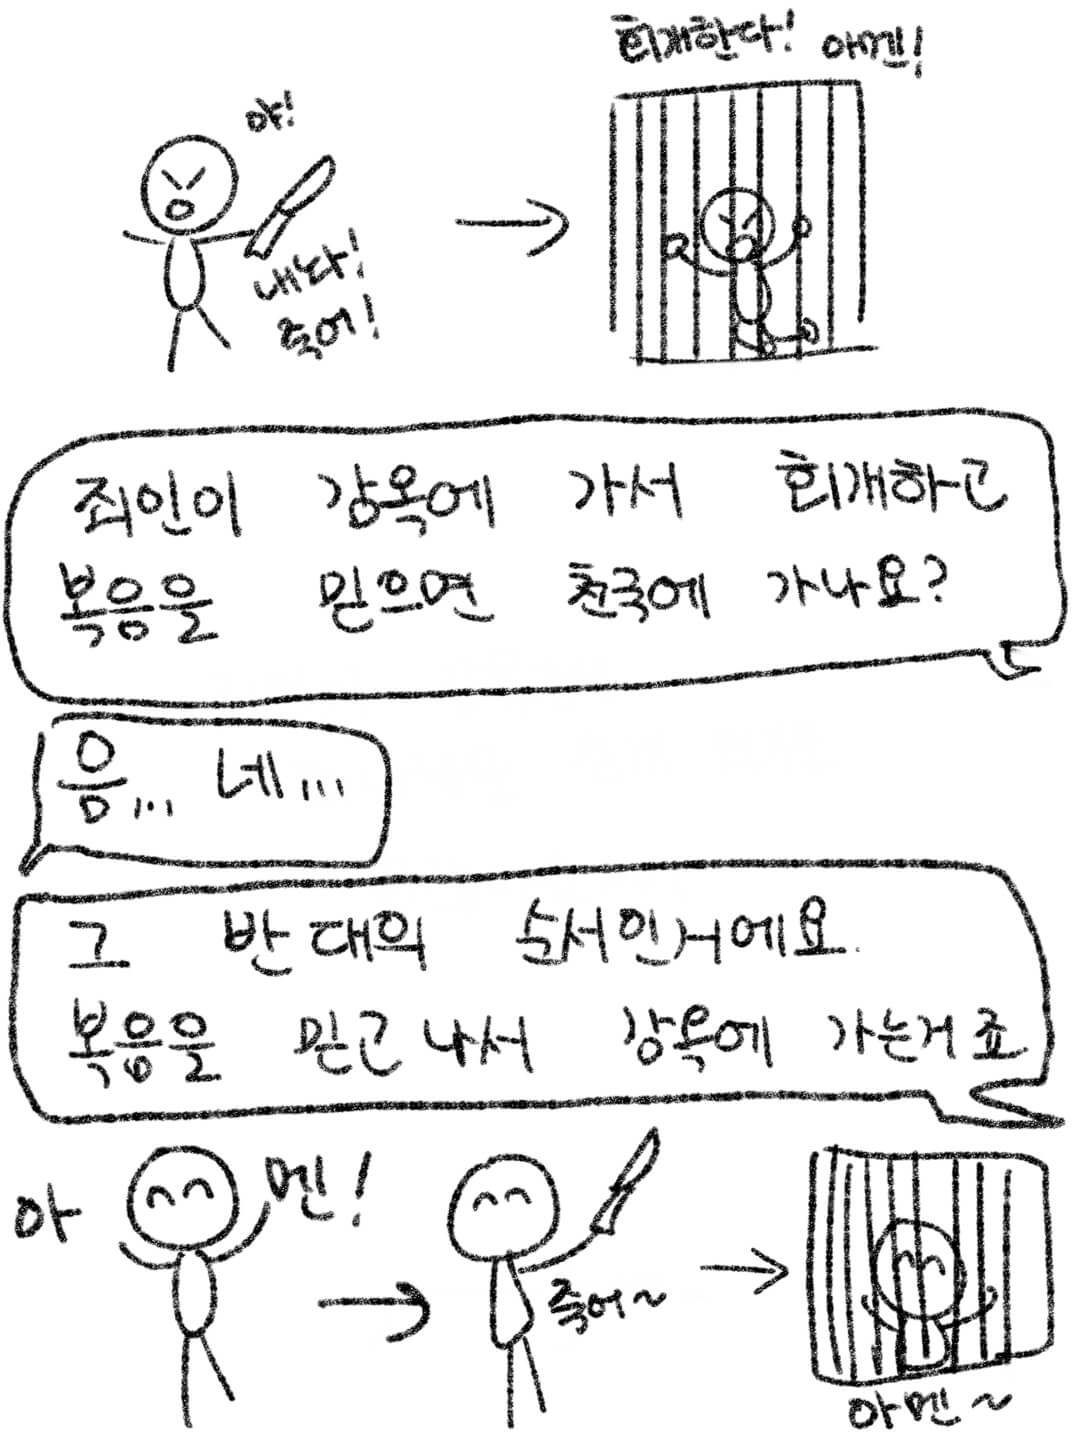 회개한다! 아멘!
야!
내놔!
죽어!
죄인이 감옥에 가서 회개하고
복음을 믿으면 천국에 가나요?
음... 네...
그 반대의 순서인거에요.
복음을 믿고 나서 감옥에 가는거죠.
아 멘!
죽어~
아멘~